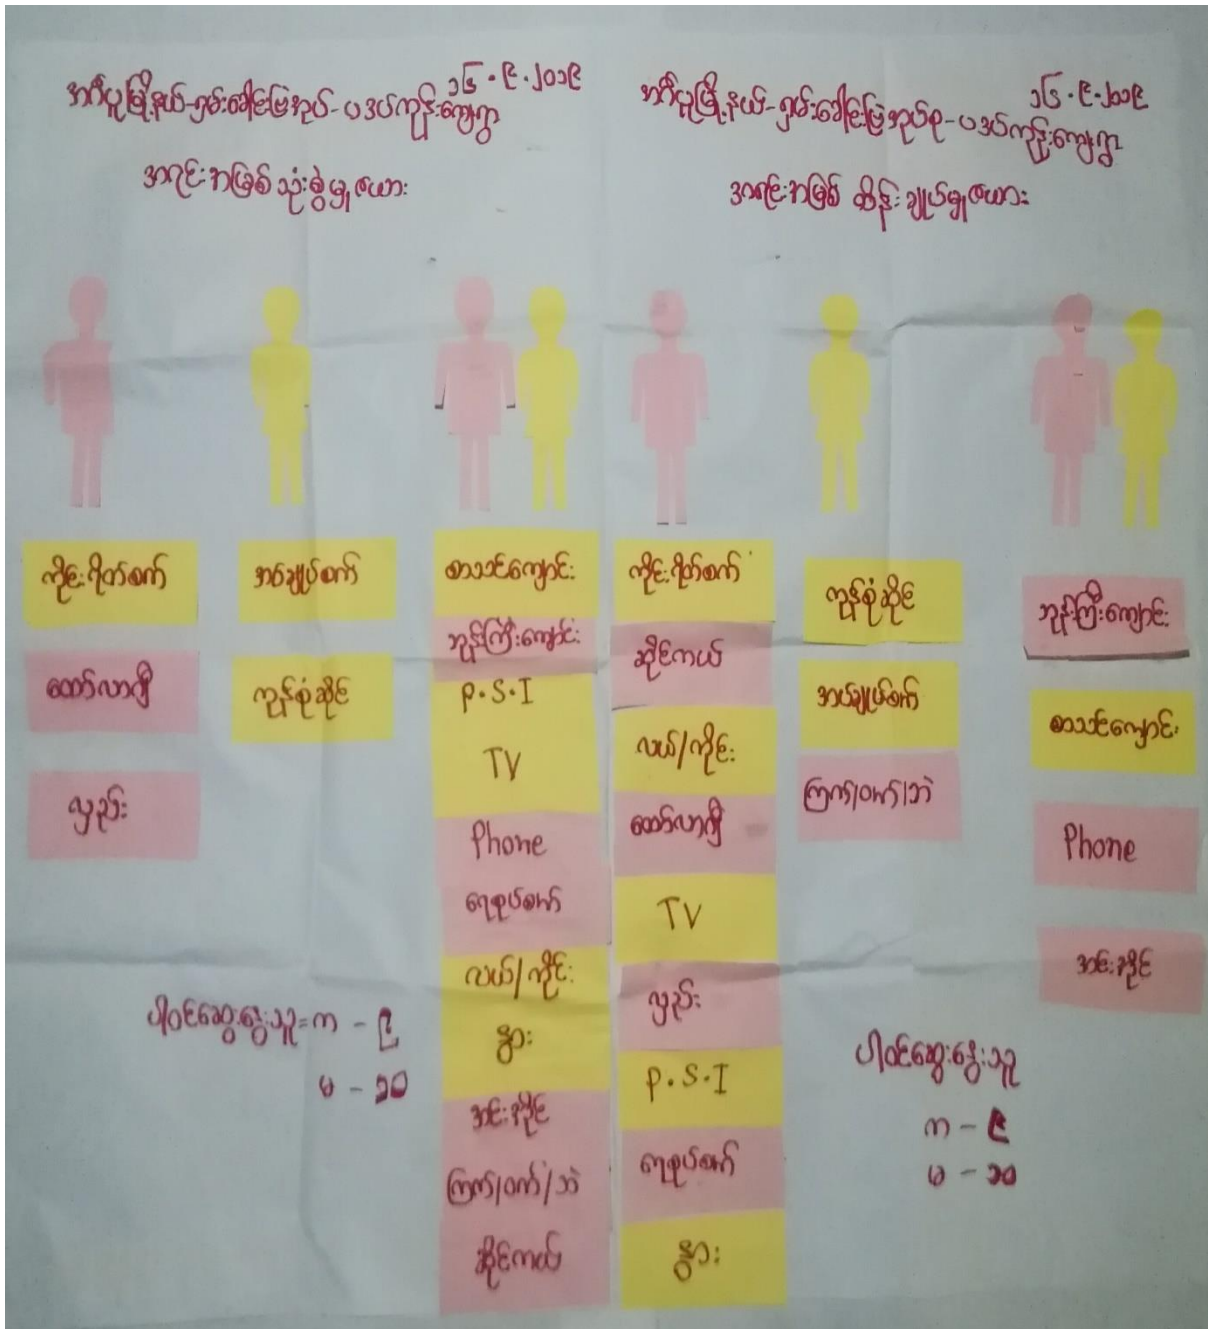 ၁၆.၉.၂၀၁၉
အင်္ဂပူမြို့နယ်-ရှမ်းခေါင်းမြဲအုပ်-ပဒပ်ကုန်းကျေးရွာ
အရင်းအမြစ် သုံးစွဲမှုဇယား
ကိုင်းဂိတ်စက်
ထော်လာဂျီ
လှည်း
အပ်ချုပ်စက်
ကုန်စုံဆိုင်
စာသင်ကျောင်း
ဘုန်းကြီးကျောင်း
P.S.I
TV
Phone
ရေစုပ်စက်
လယ်/ကိုင်း
နွား
အင်းအိုင်
ကြက်/ဝက်/ဘဲ
ဆိုင်ကယ်
ပါဝင်ဆွေးနွေးသူ=က - ၉
မ - ၁၀
၁၆.၉.၂၀၁၉
အင်္ဂပူမြို့နယ်-ရှမ်းခေါင်းမြဲအုပ်စု-ပဒပ်ကုန်းကျေးရွာ
အရင်းအမြစ် ထိန်းချုပ်မှုဇယား
ကိုင်းဂိတ်စက်
ဆိုင်ကယ်
လယ်/ကိုင်း
ထော်လာဂျီ
TV
လှည်း
P.S.I
ရေစုပ်စက်
နွား
ကုန်စုံဆိုင်
အပ်ချုပ်စက်
ကြက်/ဝက်/ဘဲ
ဘုန်းကြီးကျောင်း
စာသင်ကျောင်း
Phone
အင်းအိုင်
ပါဝင်ဆွေးနွေးသူ
က - ၉
မ - ၁၀